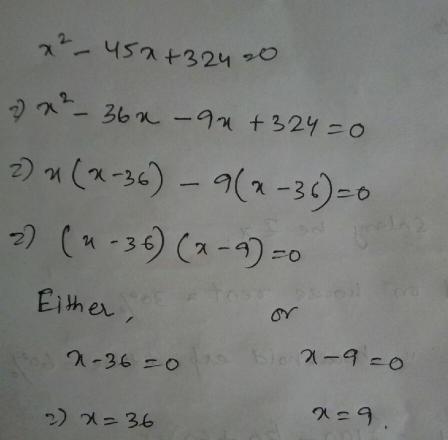 x² - 45x + 324 = 0
⇒ x² - 36x - 9x + 324 = 0
⇒ x(x-36) - 9(x-36) = 0
⇒ (x-36)(x-9) = 0
Either, or
x-36 = 0 x-9 = 0
⇒ x = 36 x = 9.